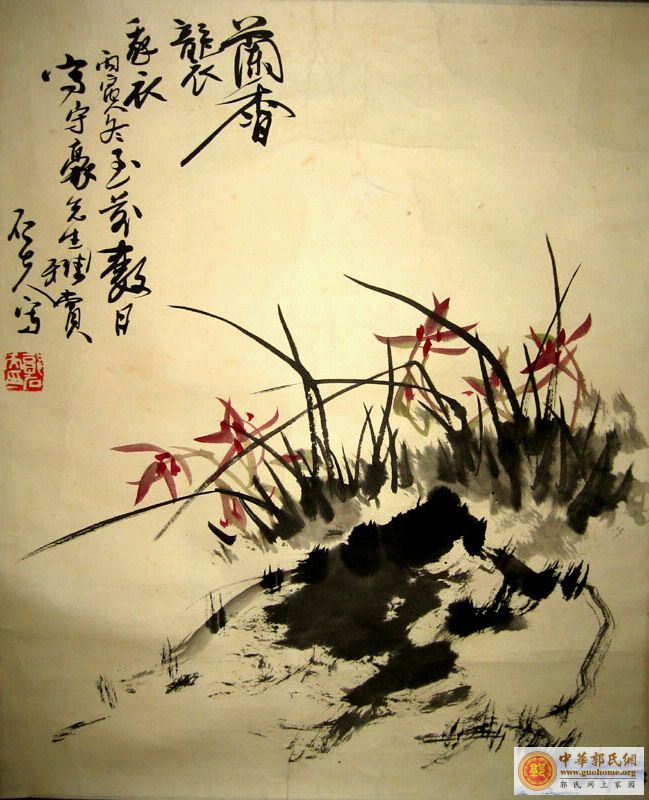 蘭香
襲
我衣
丙寅冬至前數日
守豪先生雅賞
石夫寫
中華郭氏網
www.guohome.org
郭氏網上家園